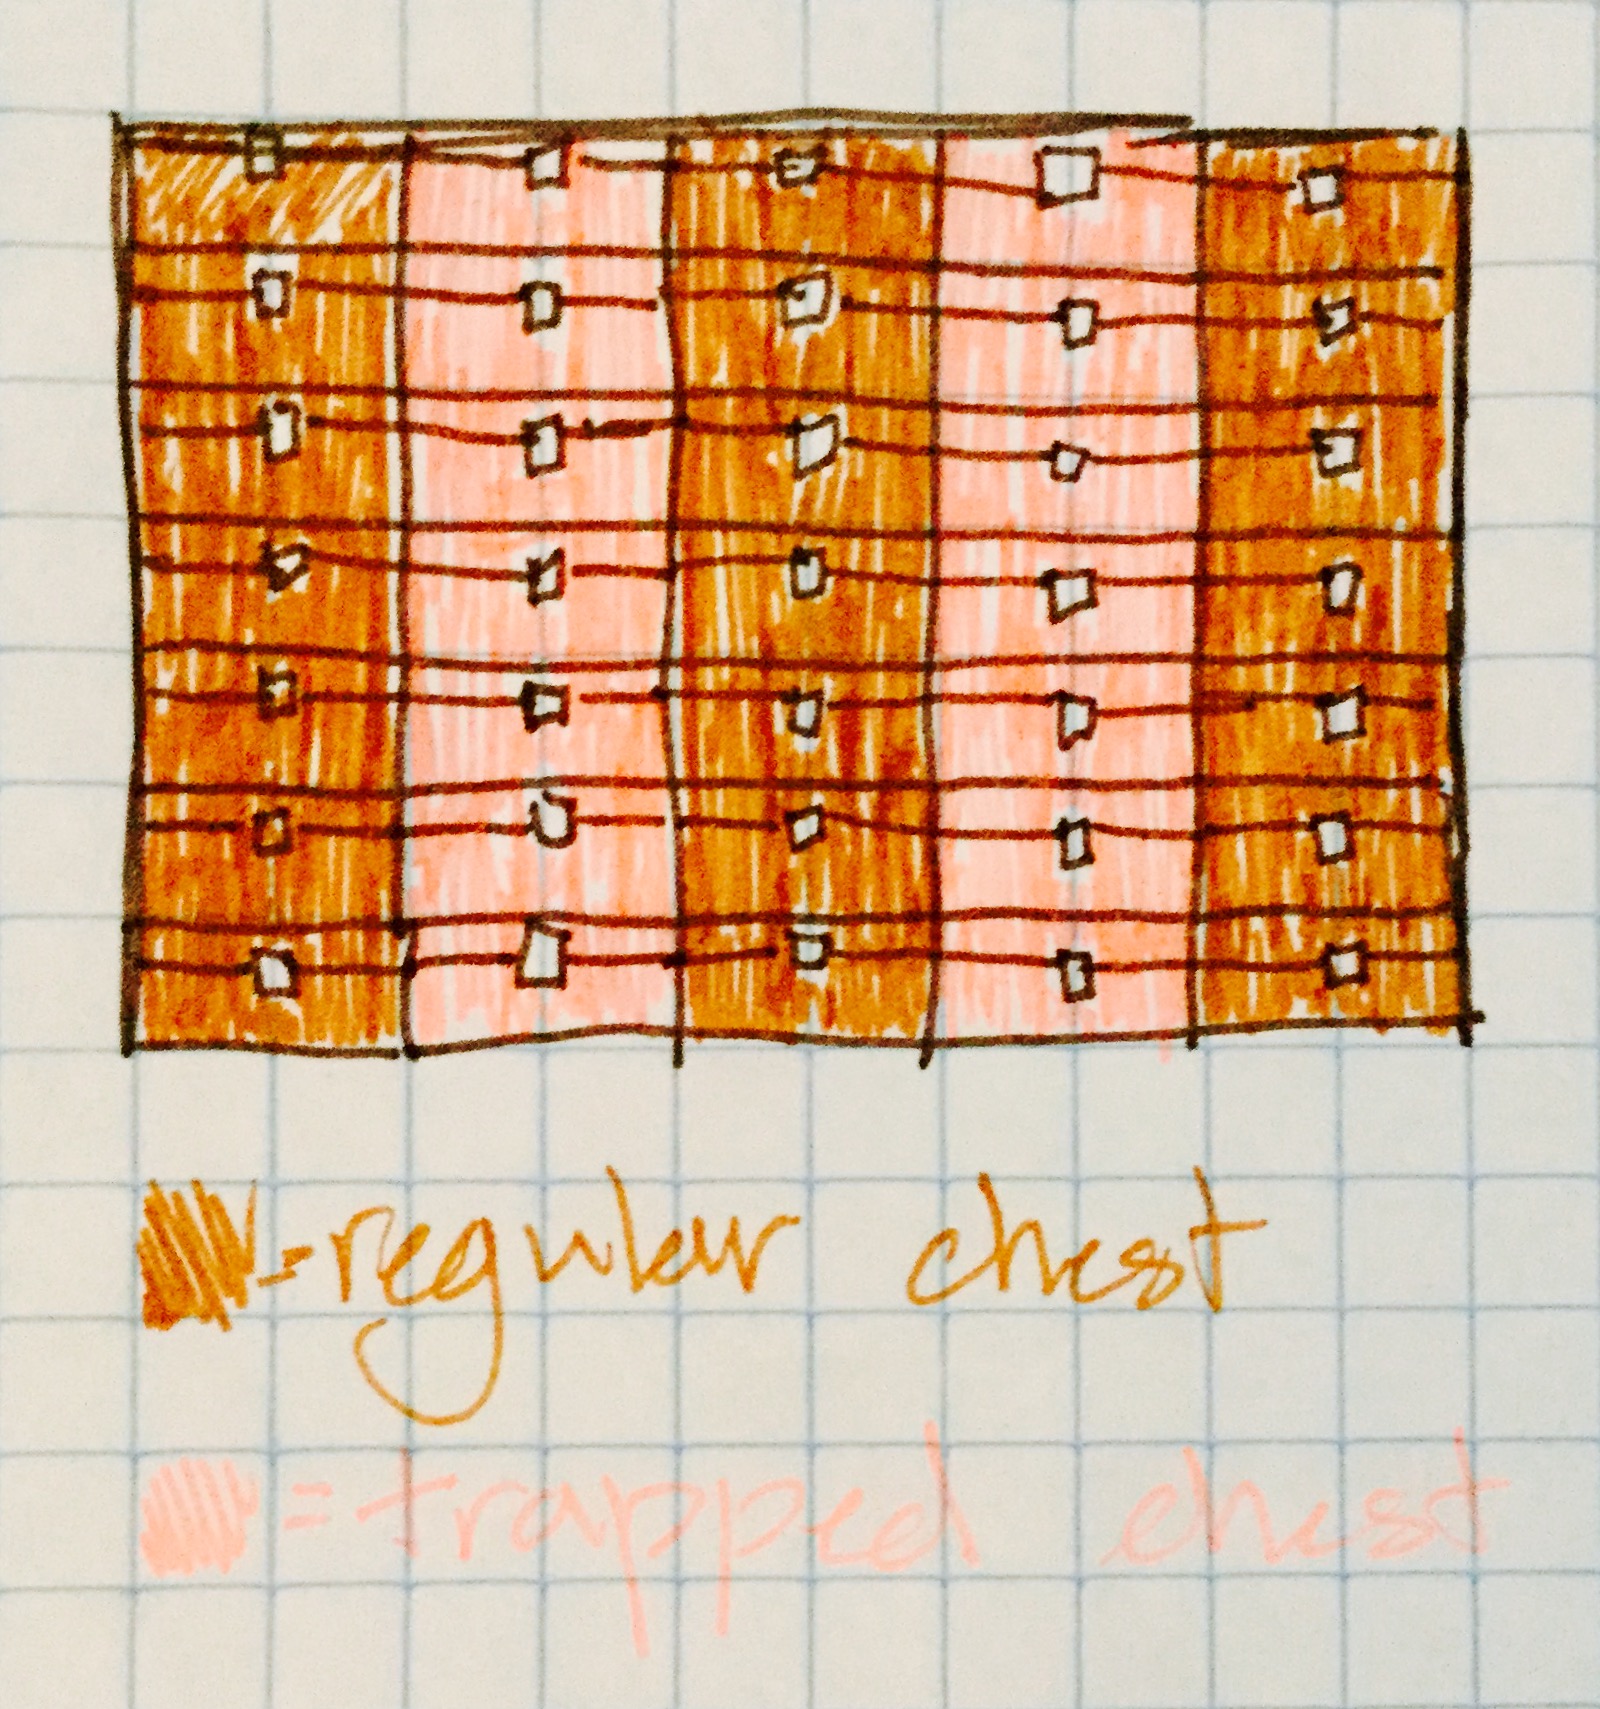 =regular chest
=trapped chest